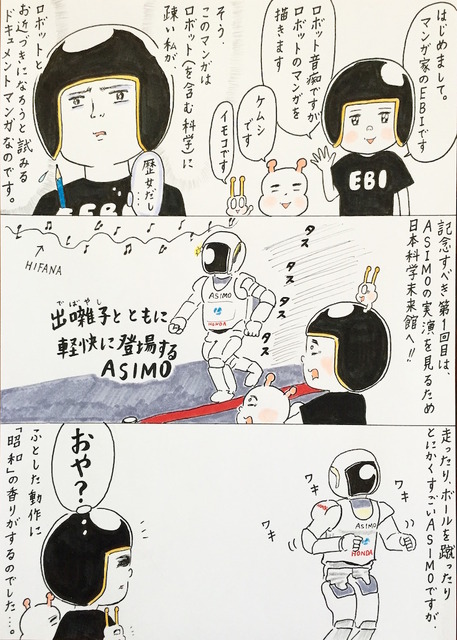 はじめまして。
マンガ家のEBIです
ロボット音痴ですが
ロボットのマンガを
描きます
ケムシ
です
イモコです
EBI
そう、
このマンガは
ロボット(を含む科学)に
疎い私が、
歴女だし…
ロボットと
お近づきになろうと試みる
ドキュメントマンガなのです。
EBI
記念すべき第1回目は、
ASIMOの実演を見るため
日本科学未来館へ!!
タス
タス
タス
タス
ASIMO
HONDA
HIFANA
でばやし
出囃子とともに
軽快に登場する
ASIMO
走ったり、ボールを蹴ったり
とにかくすごいASIMOですが、
ワキ
ワキ
ワキ
ASIMO
HONDA
おや?
ふとした動作に
「昭和」の香りがするのでした…。